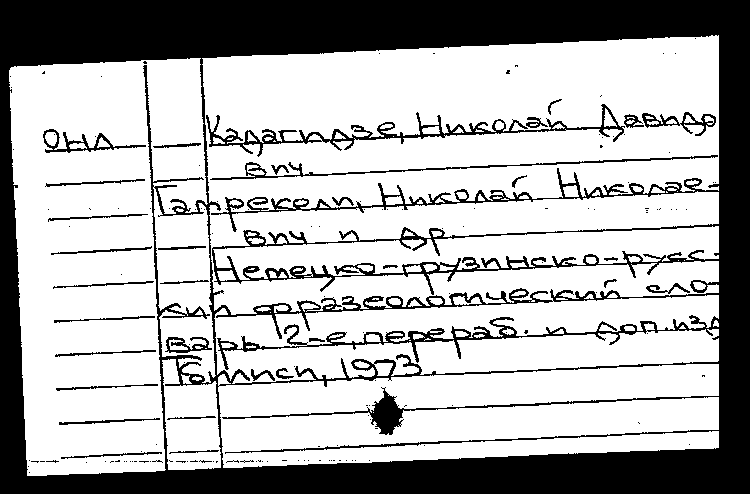 ОНЛ Кадагидзе, Николай Давидо
вич.
Гамрекели, Николай Николае-
вич и др.
Немецко-грузинско-русс-
кий фразеологический сло-
варь. 2-е, перераб. и доп. изд
Тбилиси, 1973.